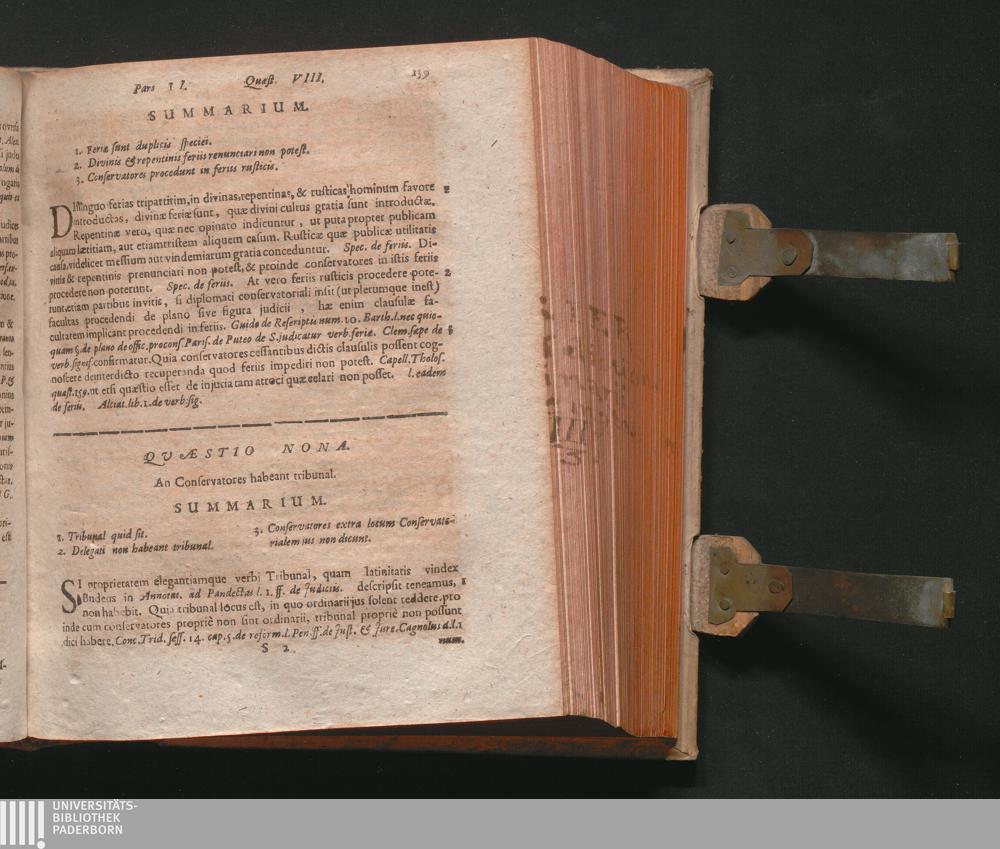 Pars II. Quæst. VIII. 159
SUMMARIUM.
1. Feriæ sunt duplicis speciei.
2. Divinis & repentinis feriis renunciari non potest.
3. Conservatores procedunt in feriis rusticis.
Distinguo ferias tripartitim, in divinas, repentinas, & rusticas hominum favore 1
introductas, divinæ feriæ sunt, quæ divini cultus gratia sunt introductæ.
Repentinæ vero, quæ nec opinato indicuntur, ut puta propter publicam
aliquam lætitiam, aut etiam tristem aliquem casum. Rusticæ quæ publicæ utilitatis
causa, videlicet messium aut vindemiarum gratia conceduntur. Spec. de feriis. Di-
vinis & repentinis prenunciari non potest, & proinde conservatores in istis feriis
procedere non poterunt. Spec. de feriis. At vero feriis rusticis procedere pote- 2
runt, etiam partibus invitis, si diplomati conservatoriali insit (ut plerumque inest)
facultas procedendi de plano sive figura judicii, hæ enim clausulæ fa-
cultatem implicant procedendi in feriis. Guido de Rescriptis num. 10. Barth. l. nec quic-
quam §. de plano de offic. procons. Paris. de Puteo de S. judicatur verb. feriæ. Clem. sæpe de 3
verb. signif. confirmatur. Quia conservatores cessantibus dictis clausulis possent cog-
noscere de interdicto recuperanda quod feriis impediri non potest. Capell. Tholos.
quæst. 159. ut etsi quæstio esset de injuria tam atroci quæ celari non posset. l. eadem
de feriis. Alciat. lib. 1. de verb. sig.
QVÆSTIO NONA.
An Conservatores habeant tribunal.
SUMMARIUM.
1. Tribunal quid sit.
2. Delegati non habeant tribunal.
3. Conservatores extra locum Conservato-
rialem jus non dicunt.
SI proprietatem elegantiamque verbi Tribunal, quam latinitatis vindex
Budeus in Annotat. ad Pandectas l. 1. ff. de Judiciis. descripsit teneamus, 1
non habebit. Quia tribunal locus est, in quo ordinarii jus solent reddere, pro
inde cum conservatores propriè non sint ordinarii, tribunal propriè non possunt
dici habere. Conc. Trid. sess. 14. cap. 5. de reform. l. Pen. ff. de Just. & Jure. Cagnolus d. l. 1
S 2 num.
UNIVERSITÄTS-
BIBLIOTHEK
PADERBORN